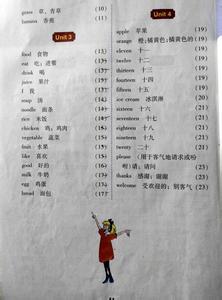 grass 草，青草 (10)
banana 香蕉 (11)
Unit 3
food 食物 (13)
eat 吃；进餐 (13)
drink 喝 (13)
juice 果汁 (13)
I 我 (13)
soup 汤 (13)
noodle 面条 (13)
rice 米饭 (14)
chicken 鸡；鸡肉 (15)
vegetable 蔬菜 (15)
fruit 水果 (15)
like 喜欢 (15)
good 好的 (16)
milk 牛奶 (17)
egg 鸡蛋 (17)
bread 面包 (17)
Unit 4
apple 苹果 (19)
orange 橙；橘黄色；橘黄色的 (19)
eleven 十一 (19)
twelve 十二 (19)
thirteen 十三 (19)
fourteen 十四 (19)
fifteen 十五 (19)
ice cream 冰淇淋 (21)
sixteen 十六 (21)
seventeen 十七 (21)
eighteen 十八 (21)
nineteen 十九 (21)
twenty 二十 (21)
please （用于客气地请求或吩
咐）请；请问 (23)
thanks 感谢；谢谢 (23)
welcome 受欢迎的；别客气 (23)